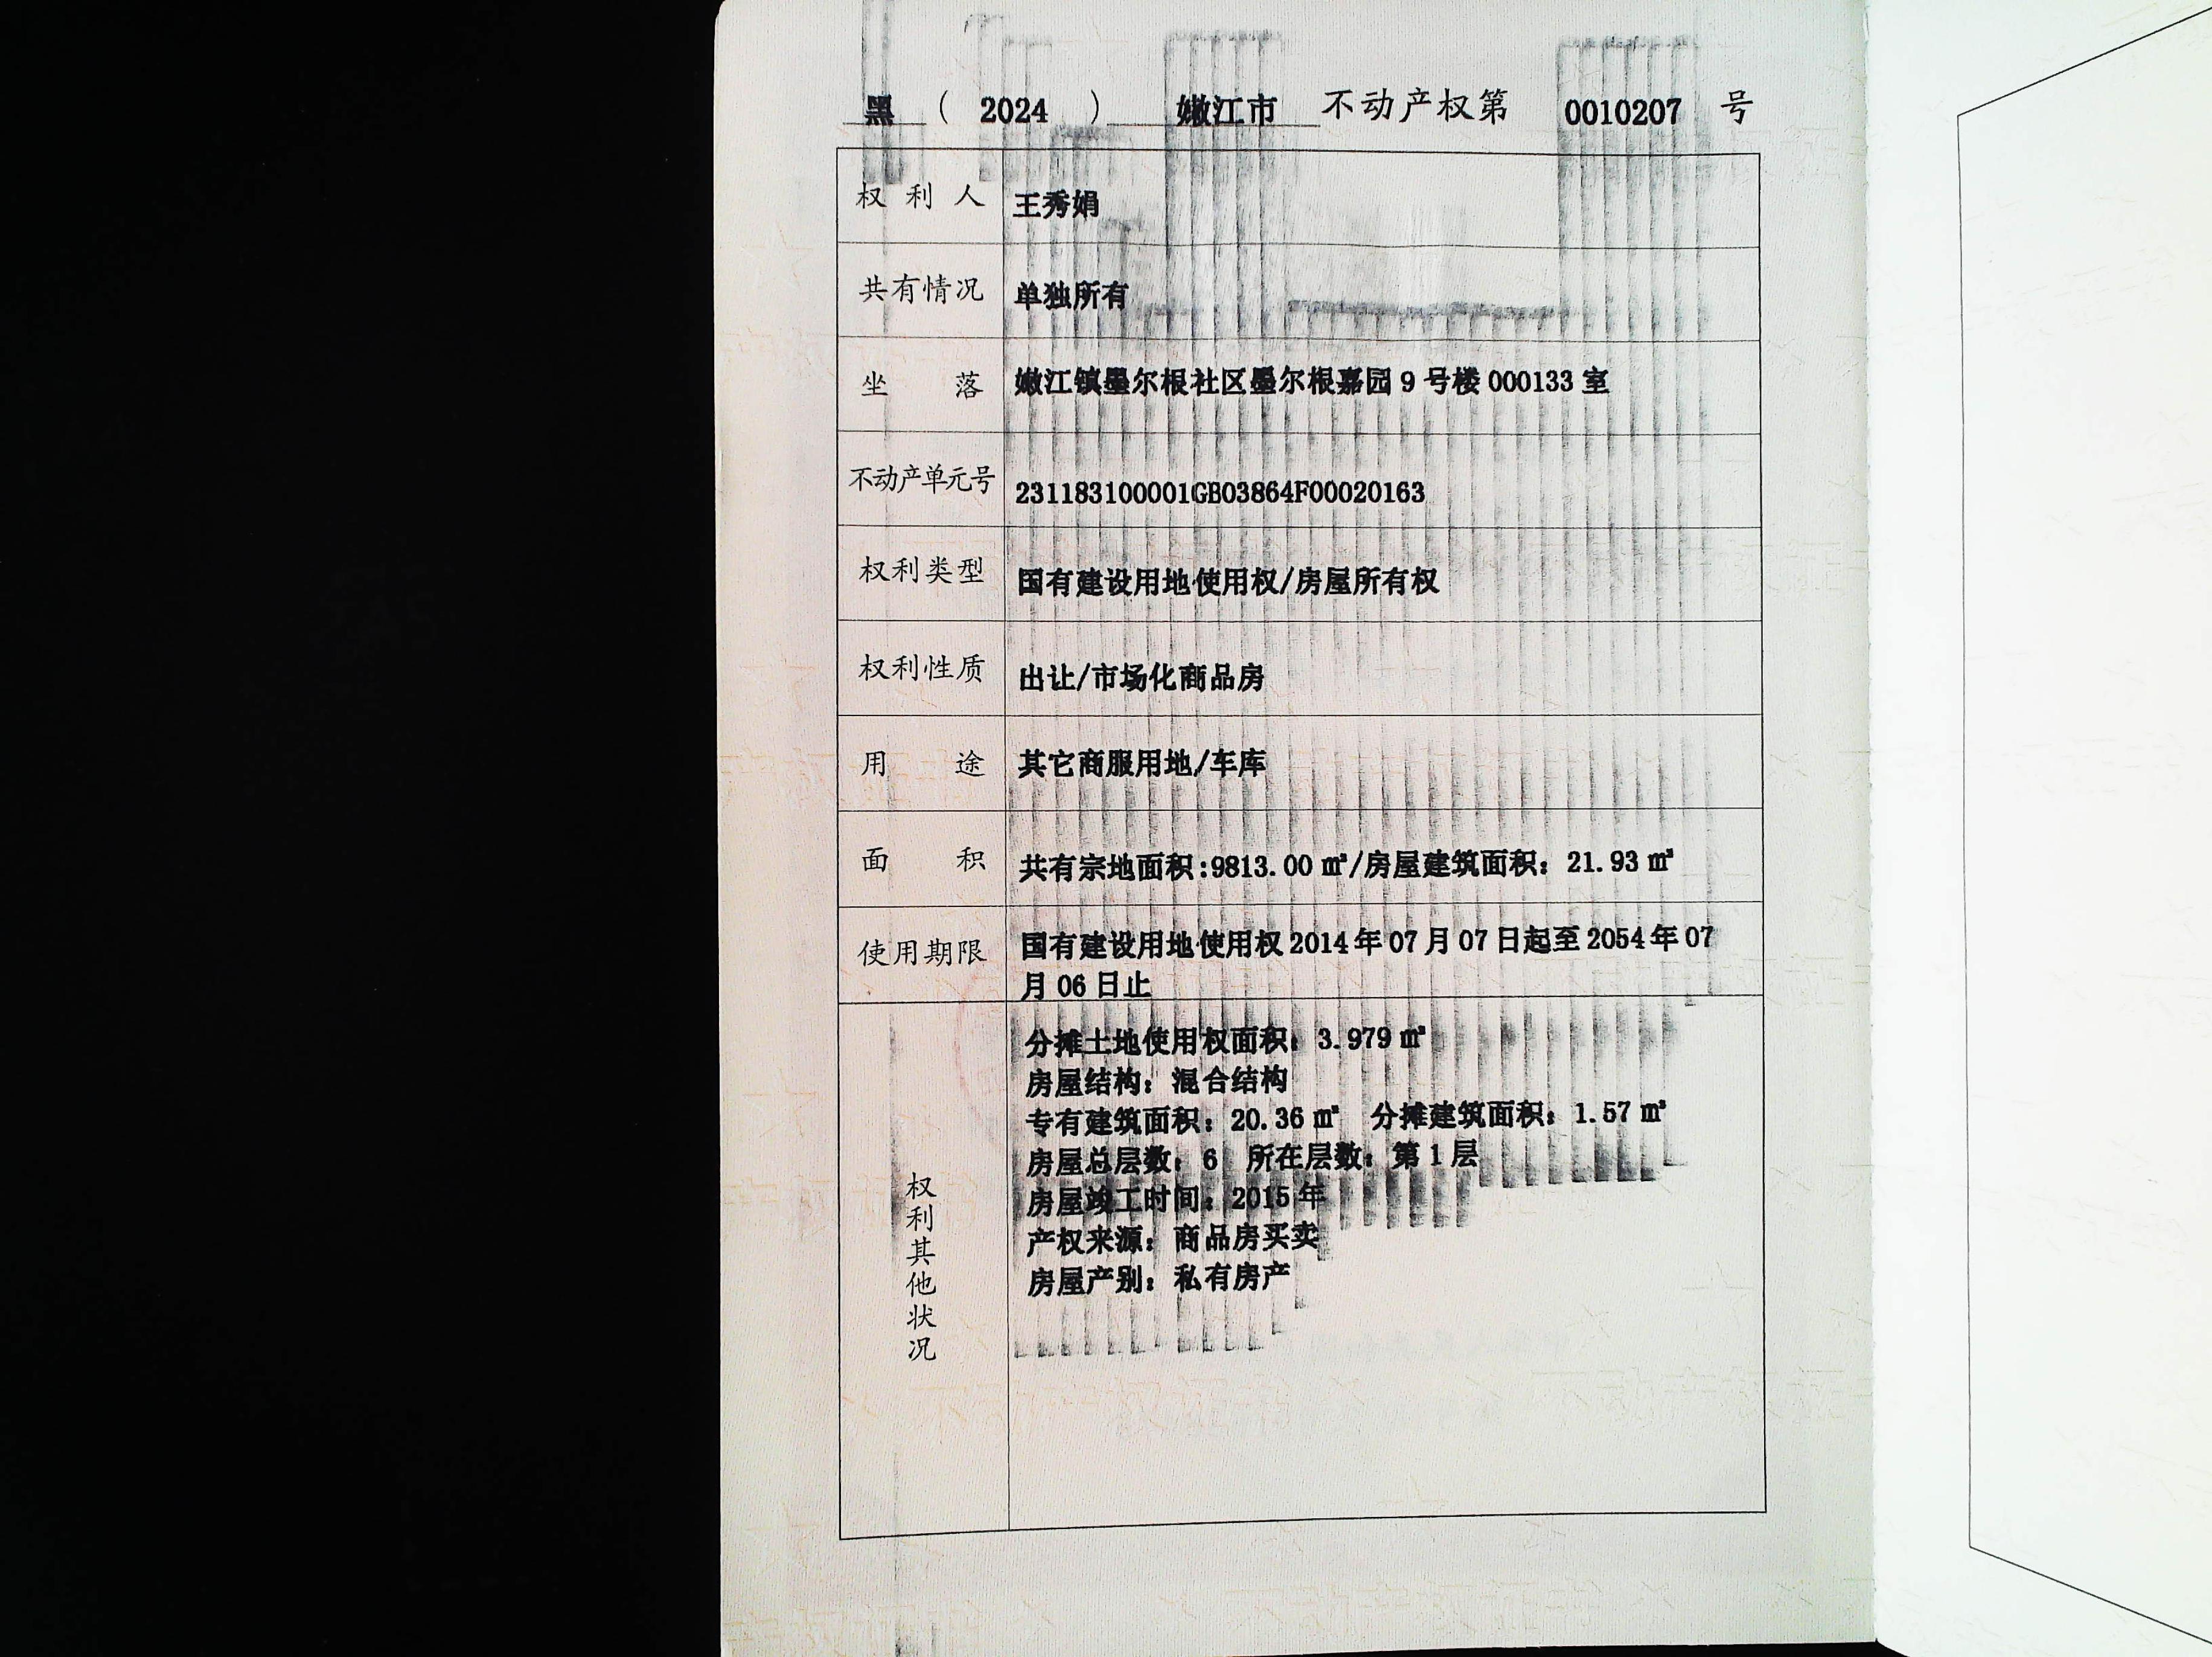 黑 ( 2024 ) 嫩江市 不动产权第 0010207 号
权利人 王秀娟
共有情况 单独所有
坐落 嫩江镇墨尔根社区墨尔根嘉园 9 号楼 000133 室
不动产单元号 231183100001GB03864F00020163
权利类型 国有建设用地使用权/房屋所有权
权利性质 出让/市场化商品房
用途 其它商服用地/车库
面积 共有宗地面积:9813.00 ㎡/房屋建筑面积：21.93 ㎡
使用期限 国有建设用地使用权 2014 年 07 月 07 日起至 2054 年 07
月 06 日止
权利其他状况
分摊土地使用权面积：3.979 ㎡
房屋结构：混合结构
专有建筑面积：20.36 ㎡ 分摊建筑面积：1.57 ㎡
房屋总层数：6 所在层数：第 1 层
房屋竣工时间：2015 年
产权来源：商品房买卖
房屋产别：私有房产